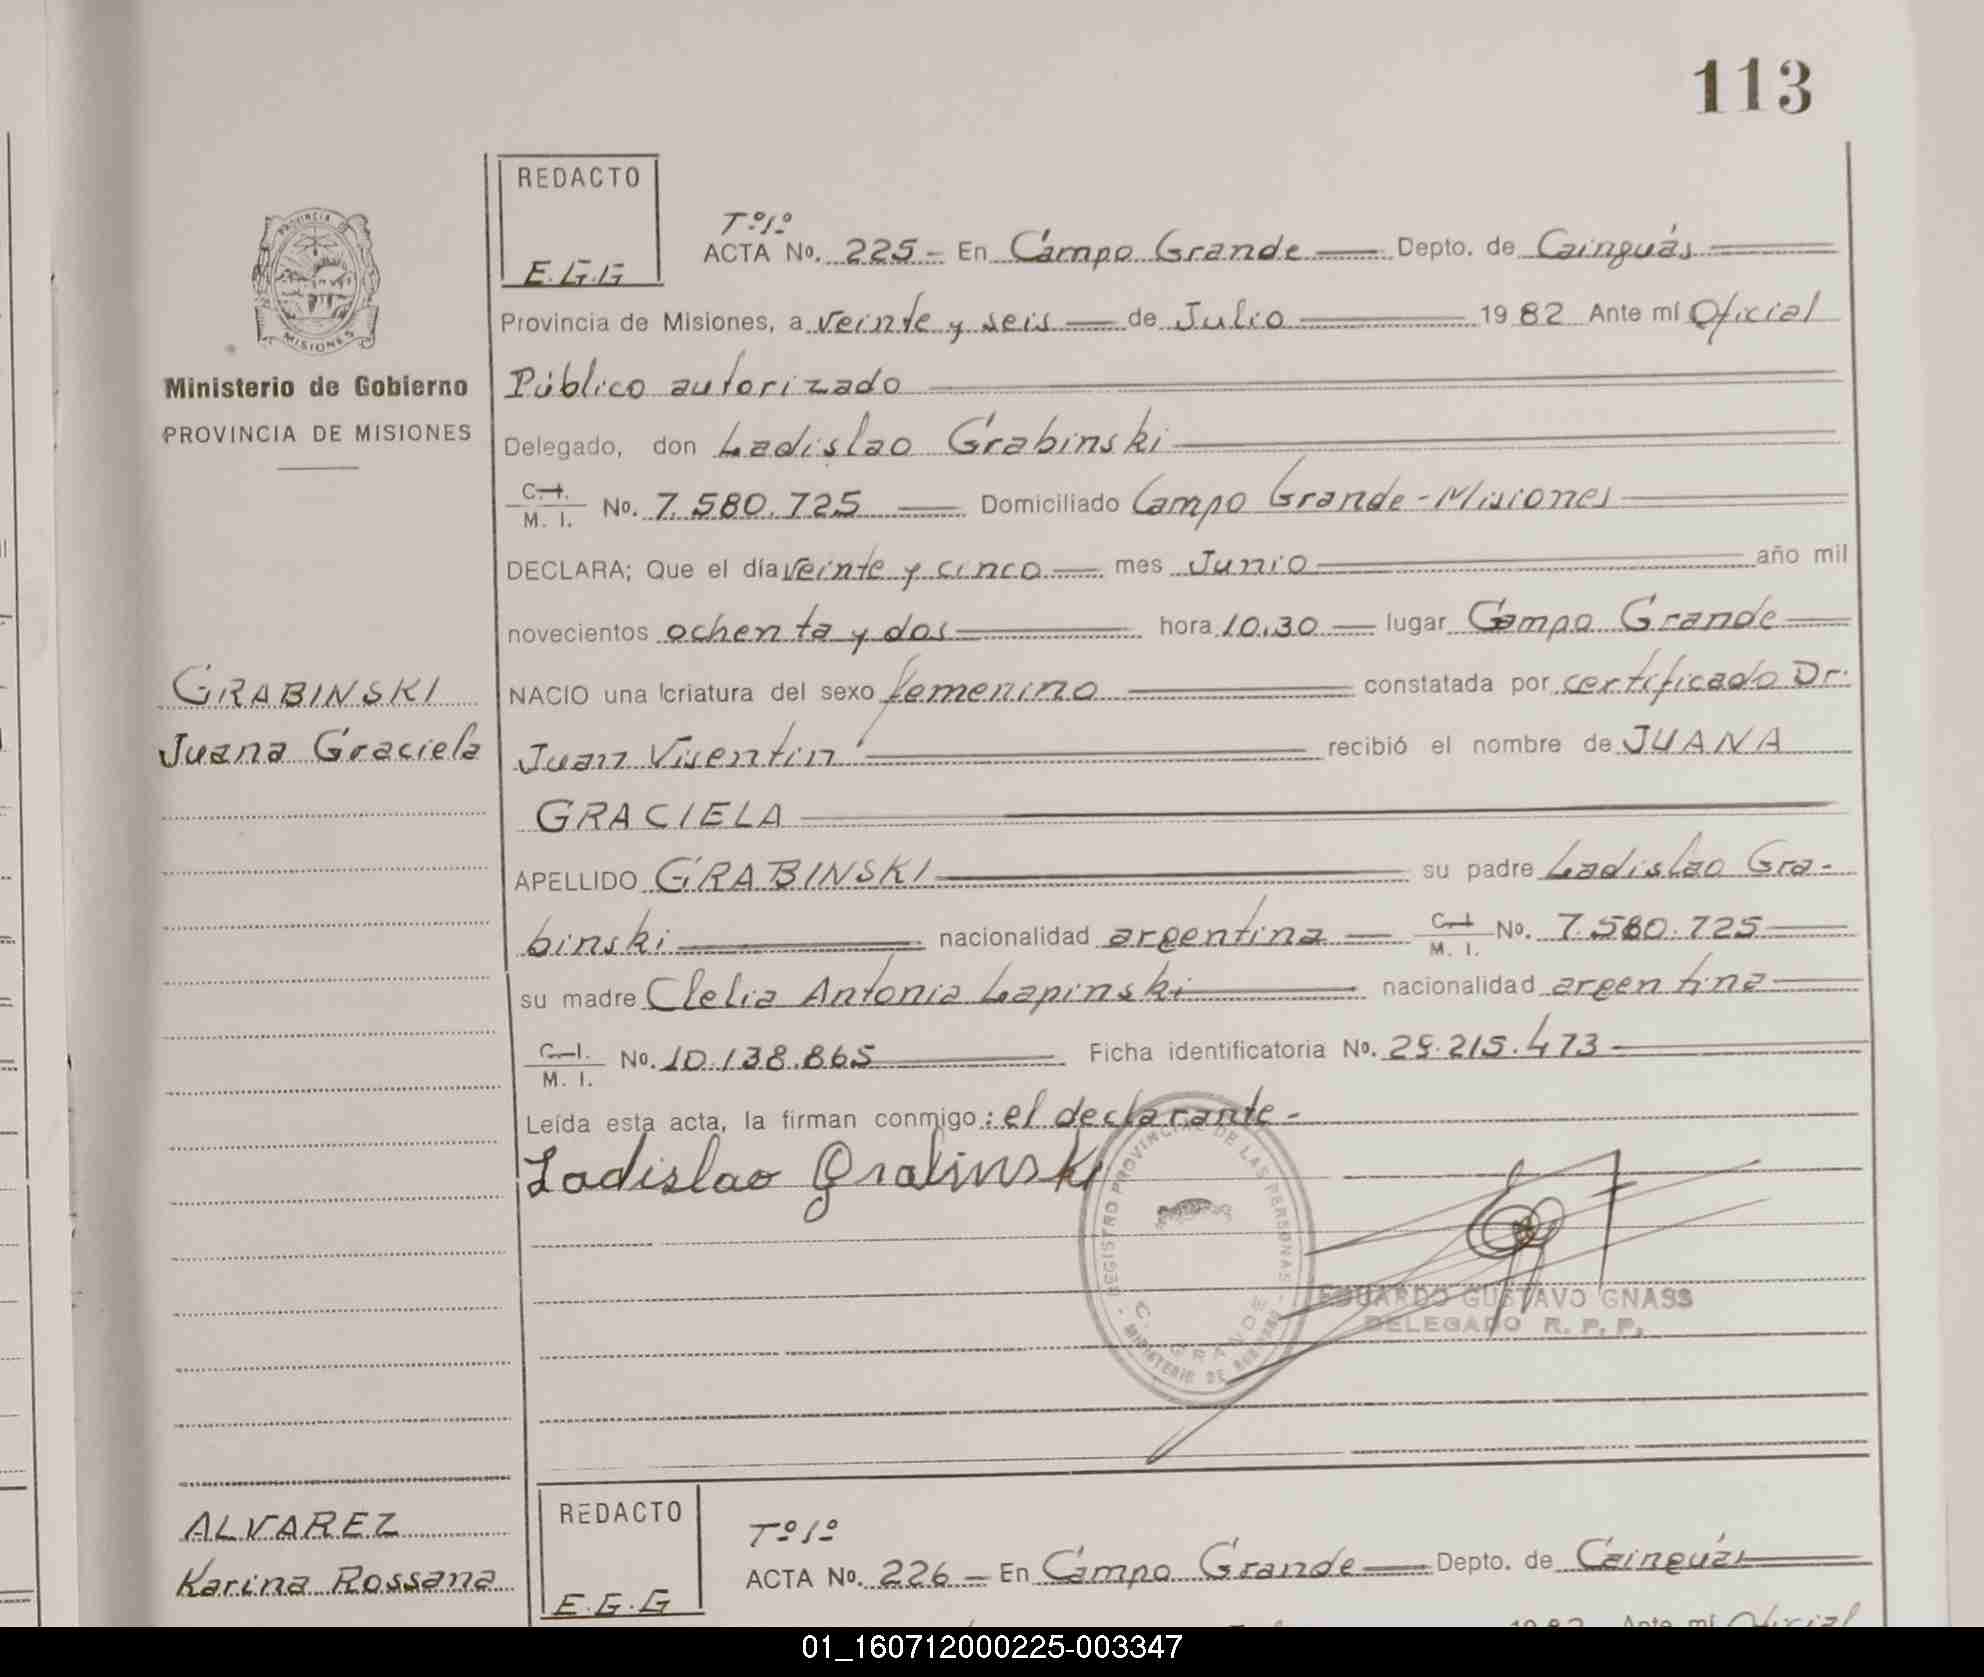 113
REDACTO
E.G.G
PROVINCIA DE
MISIONES
Ministerio de Gobierno
PROVINCIA DE MISIONES
Tº.1º
ACTA Nº. 225 - En Campo Grande Depto. de Cainguás
Provincia de Misiones, a veinte y seis de Julio 1982 Ante mí Oficial
Público autorizado
Delegado, don Ladislao Grabinski
C. I. M. I. Nº. 7.580.725 Domiciliado Campo Grande - Misiones
DECLARA; Que el día veinte y cinco mes Junio año mil
novecientos ochenta y dos hora 10.30 lugar Campo Grande
GRABINSKI
NACIO una criatura del sexo femenino constatada por certificado Dr.
Juana Graciela
Juan Visentin recibió el nombre de JUANA
GRACIELA
APELLIDO GRABINSKI su padre Ladislao Gra-
binski nacionalidad argentina C. I. M. I. Nº. 7.580.725
su madre Clelia Antonia Lapinski nacionalidad argentina
C. I. M. I. Nº. 10.138.865 Ficha identificatoria Nº. 29.215.473
Leída esta acta, la firman conmigo: el declarante -
Ladislao Grabinski
REGISTRO PROVINCIAL DE LAS PERSONAS
C. GRANDE
MINISTERIO DE GOBIERNO
EDUARDO GUSTAVO GNASS
DELEGADO R. P. P.
REDACTO
E.G.G
ALVAREZ
Karina Rossana
Tº 1º
ACTA Nº. 226 - En Campo Grande Depto. de Cainguás
1982 Ante mí Oficial
01_160712000225-003347